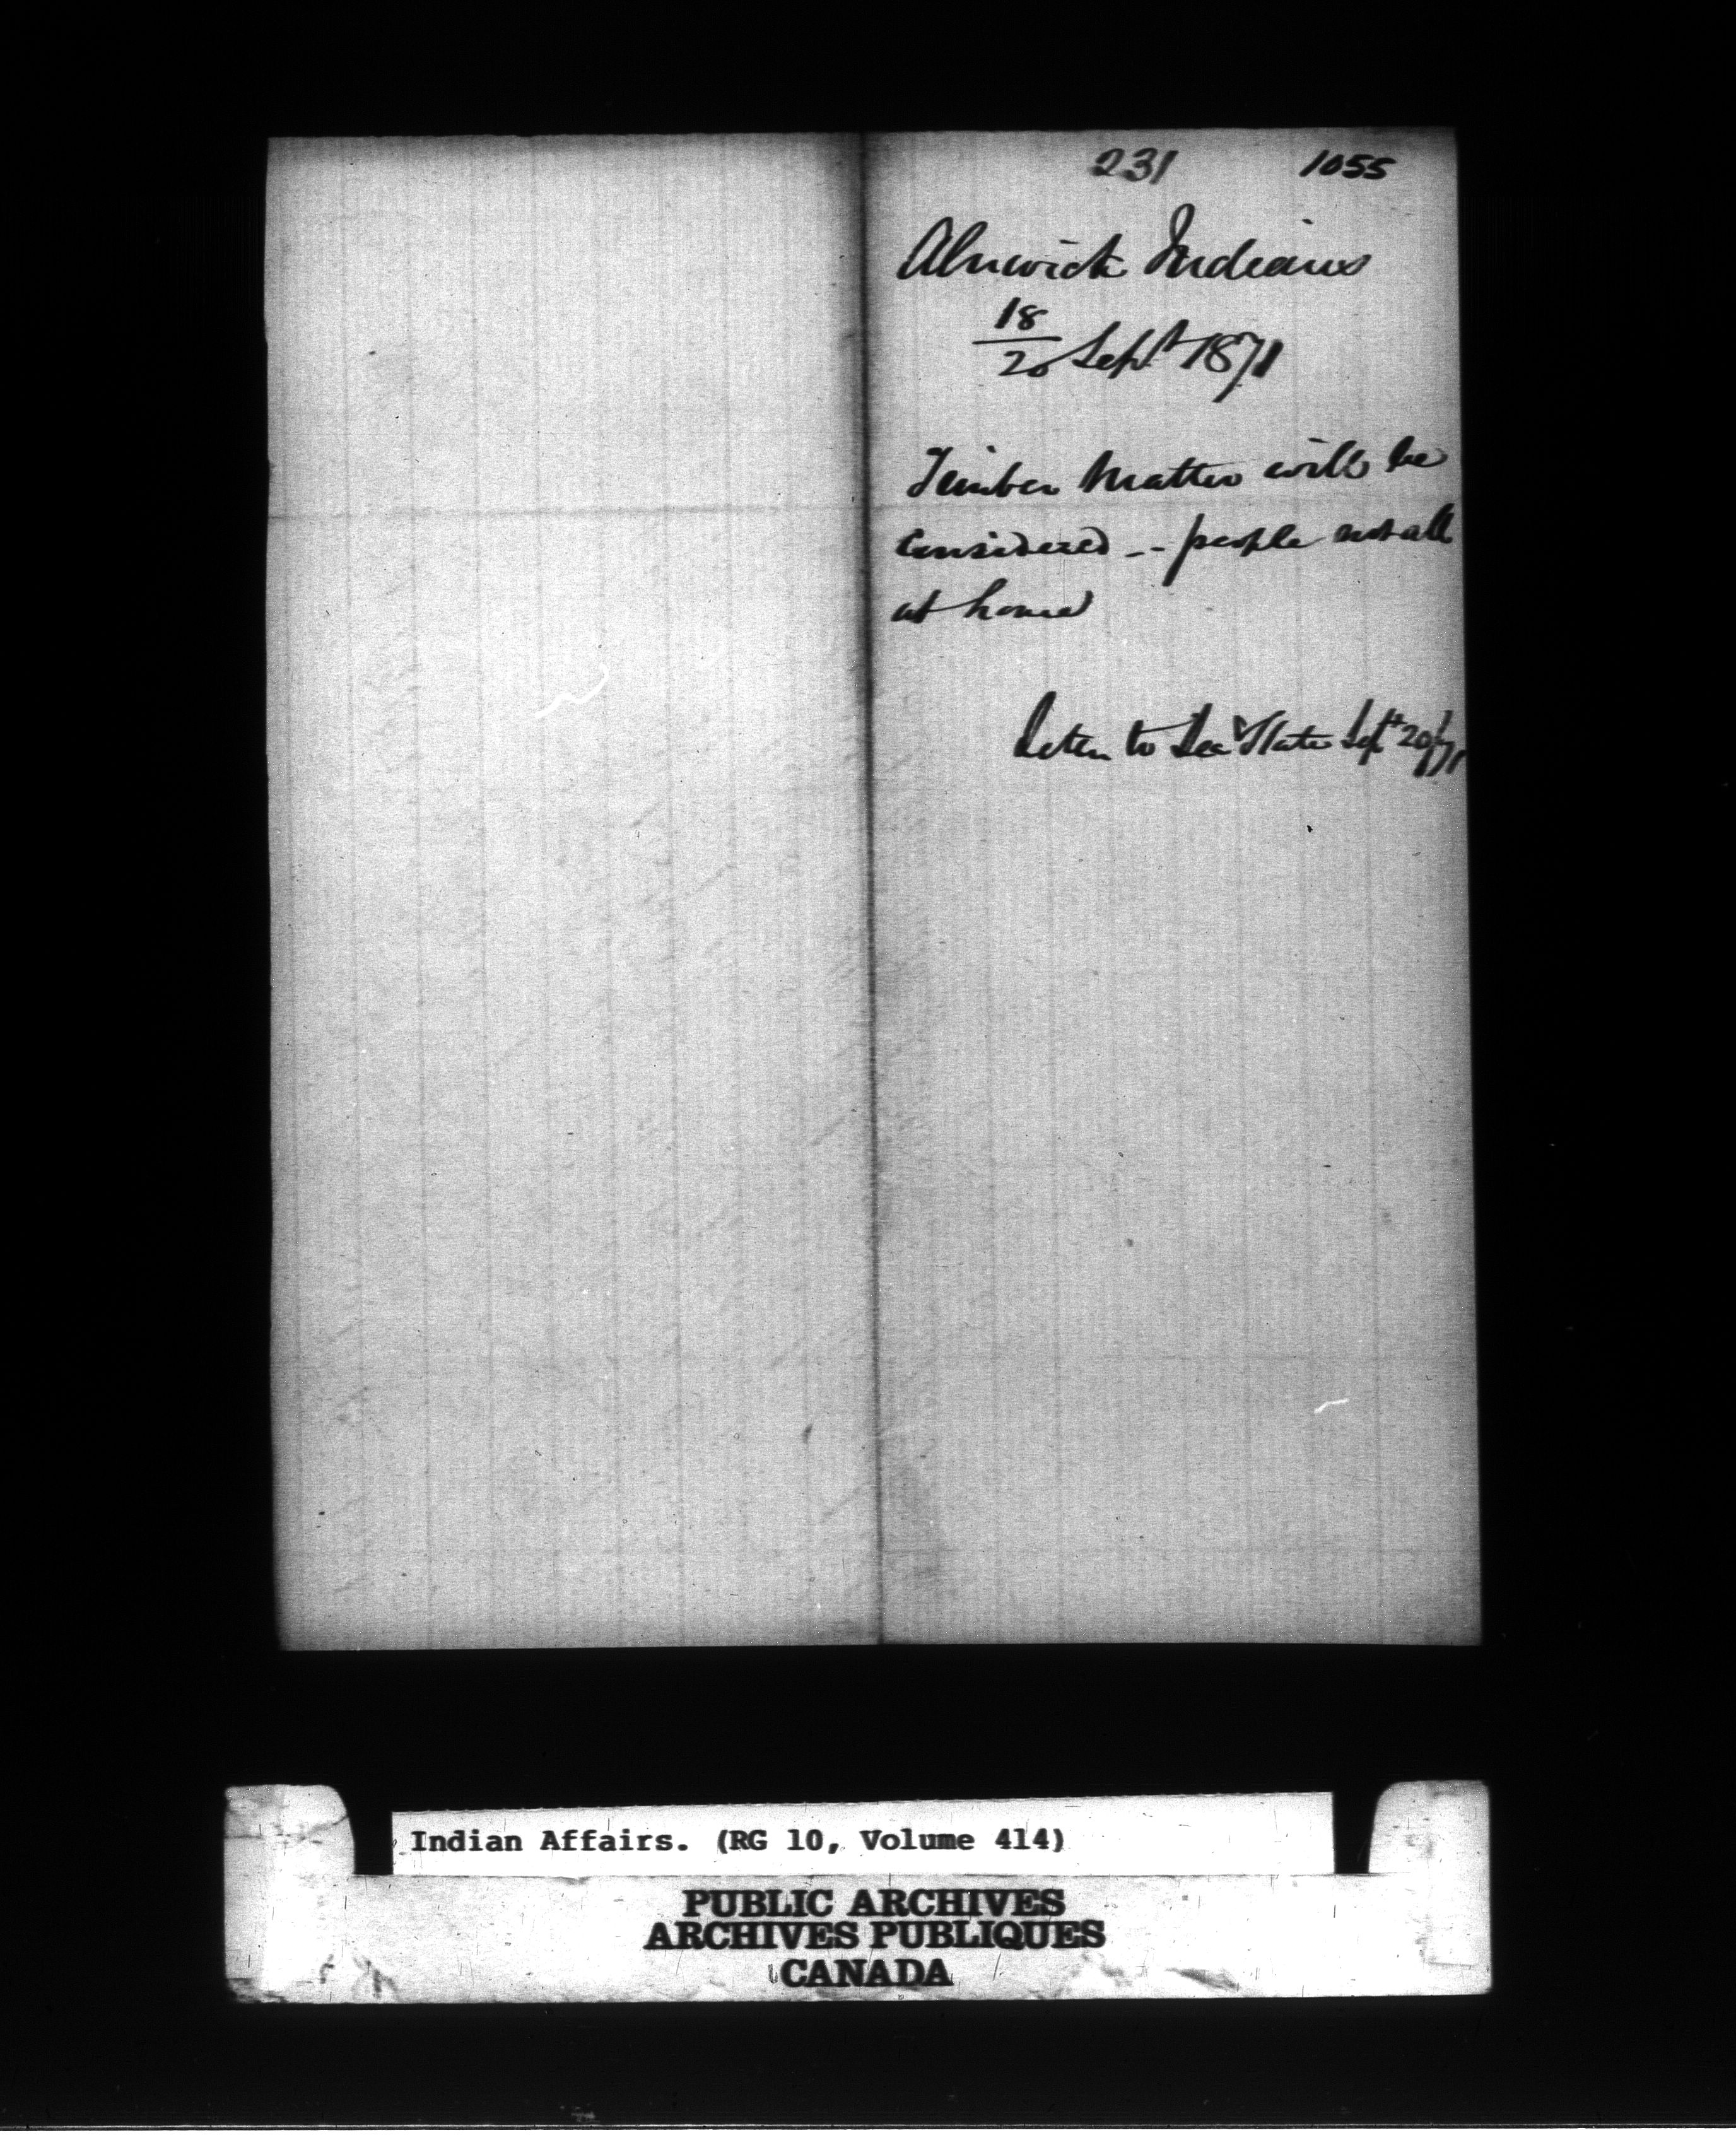 231 1055
Alnwick Indians
18
20 Sept 1871
Timber Matter will be
Considered -- people not all
at home
to Secy State Sept 20/71
Indian Affairs. (RG 10, Volume 414)
PUBLIC ARCHIVES
ARCHIVES PUBLIQUES
CANADA